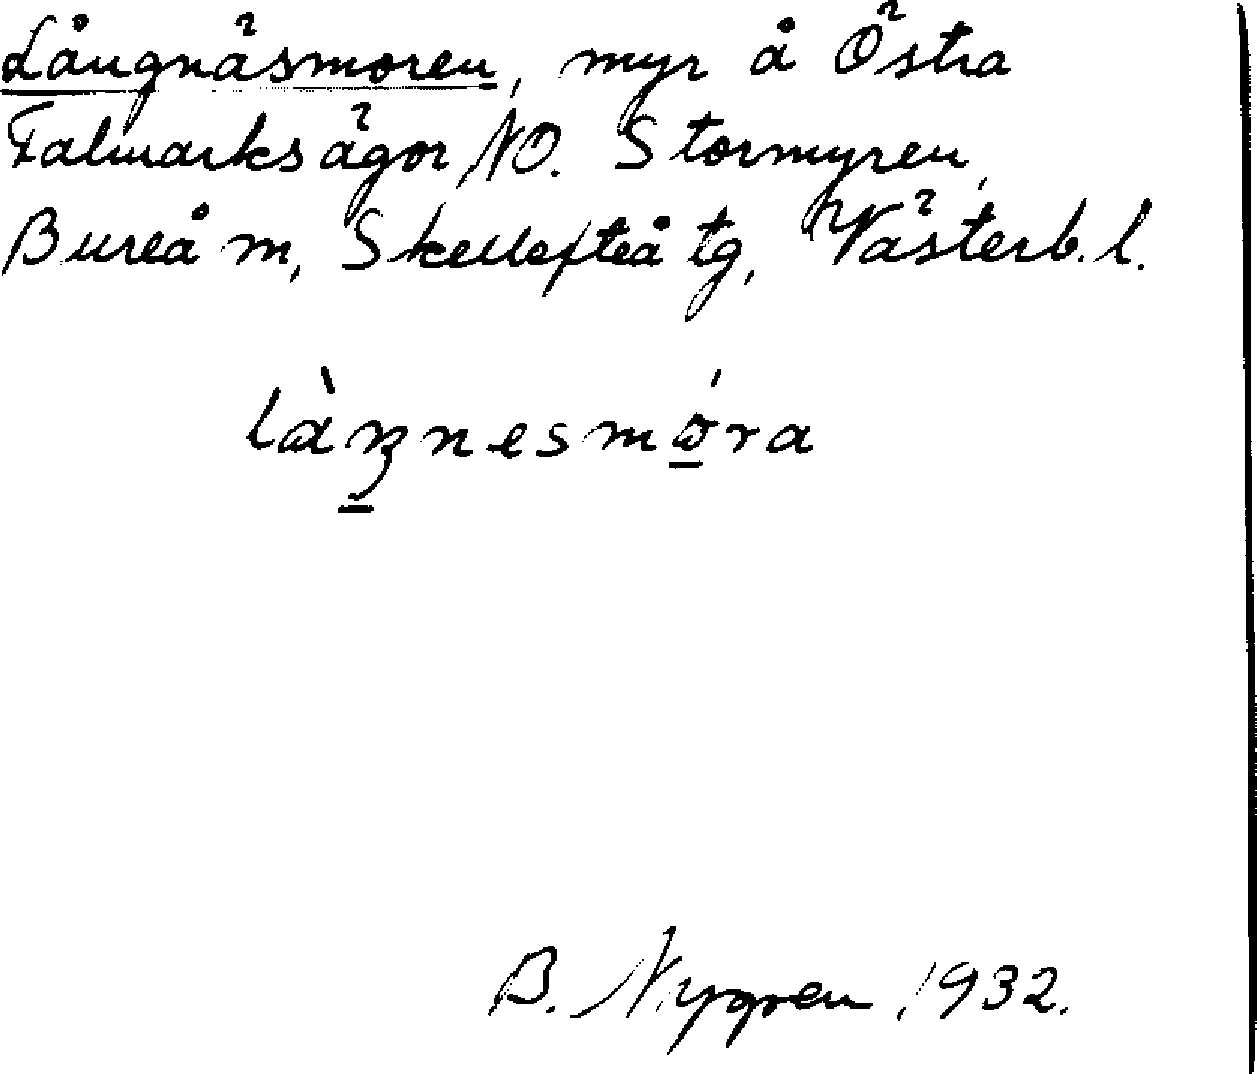 Långnäsmoren, myr å Östra
Falmarks ägor NO. Stormyren,
Bureå m, Skellefteå tg, Västerb. l.
B. Nygren 1932.